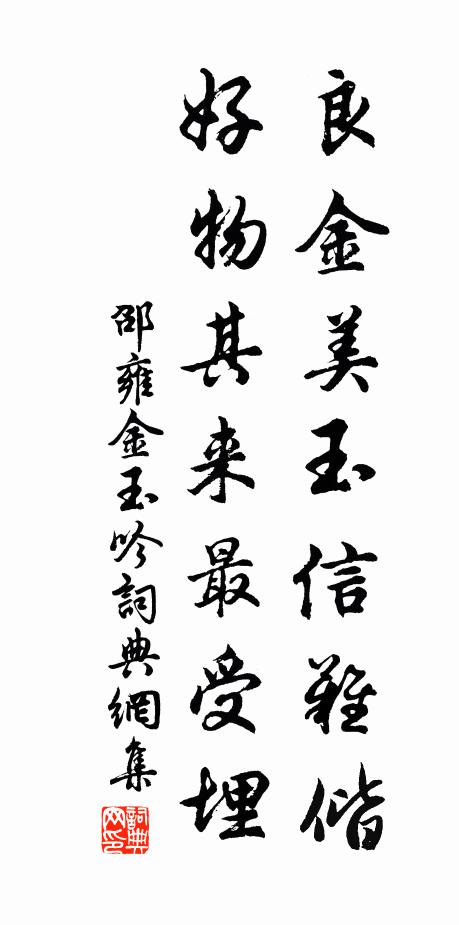 良金美玉信難偕
好物其来最受埋
邵雍金玉吟詞典網集
詞典网印